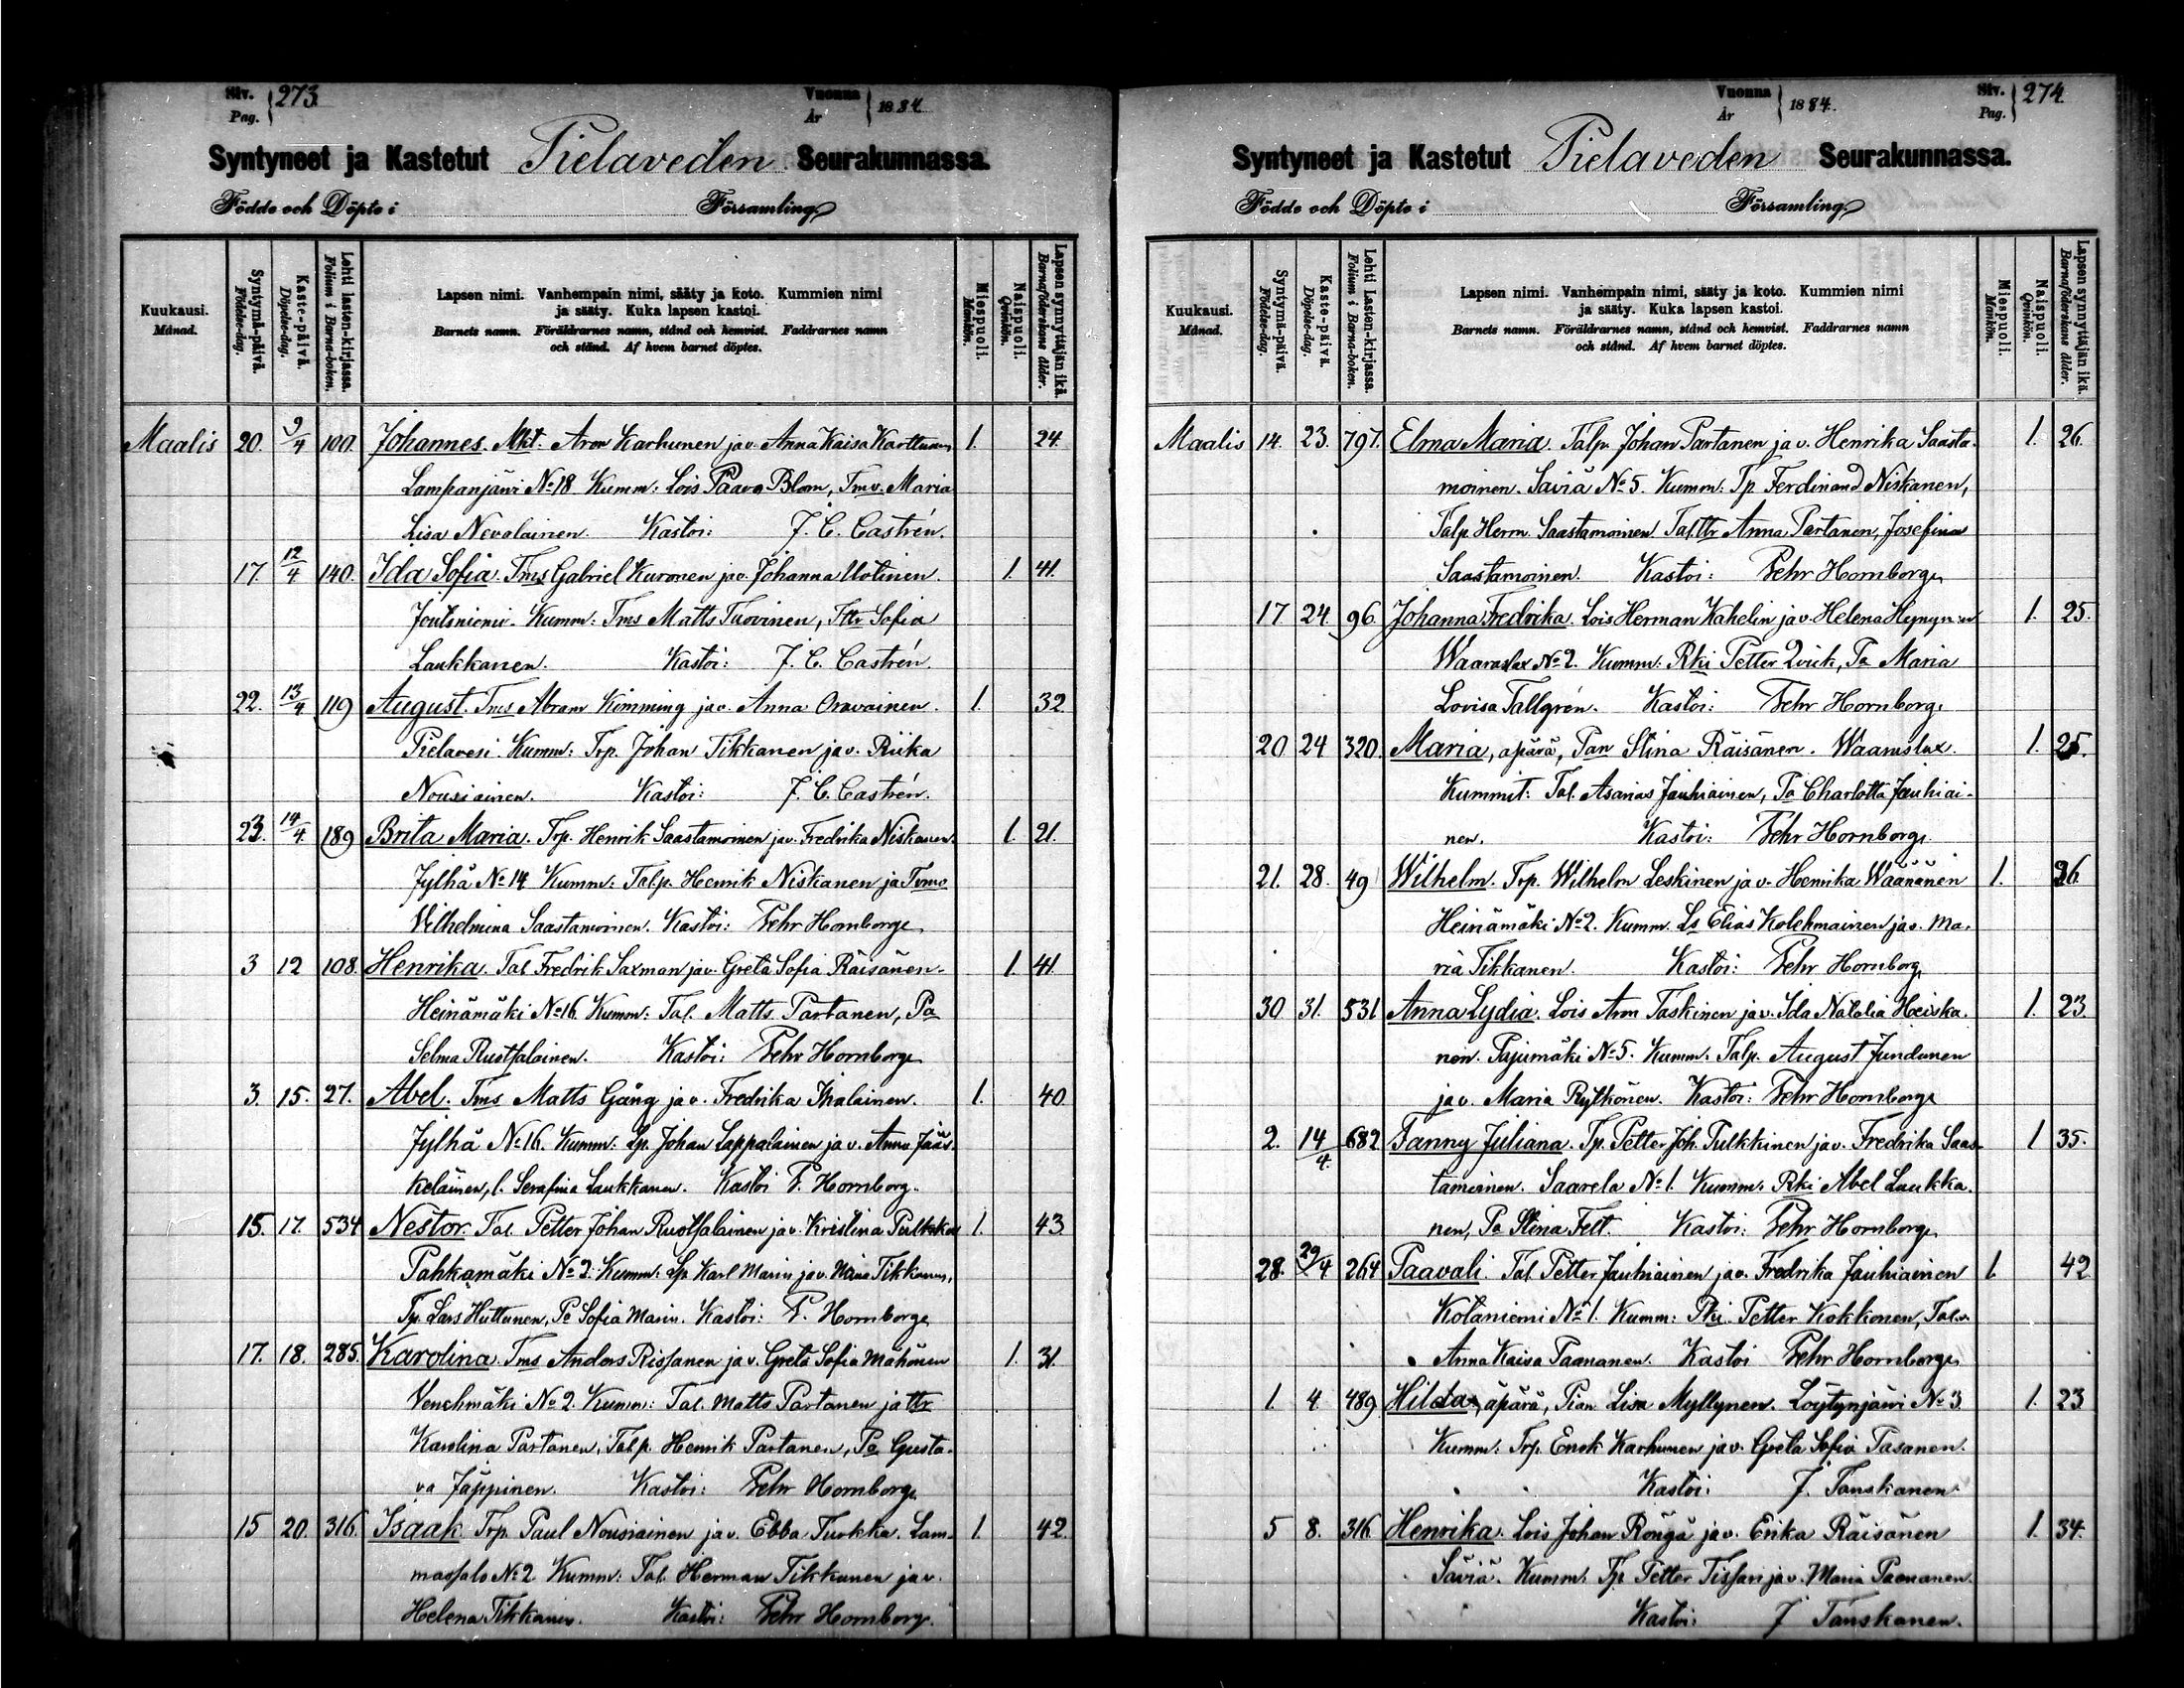 Siv. Pag. 273.
Vuonna År 1884
Syntyneet ja Kastetut Pielaveden Seurakunnassa.
Födde och Döpte i Församling.
Kuukausi. Månad.
Syntymä-päivä. Födelse-dag.
Kaste-päivä. Döpelse-dag.
Lehti lasten-kirjassa. Folium i Barna-boken.
Lapsen nimi. Vanhempain nimi, sääty ja koto. Kummien nimi
ja sääty. Kuka lapsen kastoi.
Barnets namn. Föräldrarnes namn, stånd och hemvist. Faddrarnes namn
och stånd. Af hvem barnet döptes.
Miespuoli. Mankön.
Naispuoli. Qvinkön.
Lapsen synnyttäjän ikä. Barnaföderskans ålder.
Maalis 20. 9/4 100. Johannes. Mkt. Aron Karhunen ja v. Anna Kaisa Karttunen 1. 24.
Lampanjärvi No 18 Kumm: Lois Paavo Blom, Tmv. Maria
Lisa Nevalainen. Kastoi: J. C. Castrén.
17. 12/4 140. Ida Sofia. Tms Gabriel Kuronen ja v. Johanna Uotinen. 1. 41.
Joutsniemi. Kumm: Tms Matts Tuovinen, Ttr Sofia
Laukkanen. Kastoi: J. C. Castrén.
22. 13/4 119 August. Tms Abram Kimming ja v. Anna Oravainen. 1. 32
Pielavesi. Kumm: Trp. Johan Tikkanen ja v. Riika
Nousiainen. Kastoi: J. C. Castrén.
23. 14/4 189 Brita Maria. Trp. Henrik Saastamoinen ja v. Fredrika Niskanen. 1. 21.
Jylhä No 14 Kumm: Talp. Henrik Niskanen ja Tmv
Vilhelmina Saastamoinen. Kastoi: Fehr Hornborg.
3 12 108. Henrika. Tal. Fredrik Saxman ja v. Greta Sofia Räisänen. 1. 41.
Heinämäki No 16. Kumm: Tal. Matts Partanen, Pa
Selma Ruotsalainen. Kastoi: Fehr Hornborg.
3. 15. 27. Abel. Tms Matts Gång ja v. Fredrika Ihalainen. 1. 40
Jylhä No 16. Kumm: Lp. Johan Lappalainen ja v. Anna Jääs-
keläinen, l. Serafina Laukkanen. Kastoi F. Hornborg.
15. 17. 534 Nestor. Tal. Petter Johan Ruotsalainen ja v. Kristina 1. 43
Pahkamäki No 2. Kumm: Lp Karl Marin ja v. Maria Tikkanen,
Tp. Lars Huttunen, Pa Sofia Marin. Kastoi: F. Hornborg.
17. 18. 285. Karolina. Tms Anders Rissanen ja v. Greta Sofia Mähönen 1. 31.
Venehmäki No 2. Kumm: Tal. Matts Partanen ja ttr
Karolina Partanen, Talp. Henrik Partanen, Pa Gusta-
va Jäppinen. Kastoi: Fehr Hornborg.
15 20. 316. Isaak. Trp. Paul Nousiainen ja v. Ebba Turkka. Lam- 1. 42.
massalo No 2. Kumm: Tal. Herman Tikkanen ja v.
Helena Tikkanen. Kastoi: Fehr Hornborg.
Vuonna År 1884.
Siv. Pag. 274.
Syntyneet ja Kastetut Pielaveden Seurakunnassa.
Födde och Döpte i Församling.
Kuukausi. Månad.
Syntymä-päivä. Födelse-dag.
Kaste-päivä. Döpelse-dag.
Lehti lasten-kirjassa. Folium i Barna-boken.
Lapsen nimi. Vanhempain nimi, sääty ja koto. Kummien nimi
ja sääty. Kuka lapsen kastoi.
Barnets namn. Föräldrarnes namn, stånd och hemvist. Faddrarnes namn
och stånd. Af hvem barnet döptes.
Miespuoli. Mankön.
Naispuoli. Qvinkön.
Lapsen synnyttäjän ikä. Barnaföderskans ålder.
Maalis 14. 23. 797. Elma Maria. Talp. Johan Partanen ja v. Henrika Saasta- 1. 26.
moinen. Säviä No 5. Kumm: Tp. Ferdinand Niskanen,
Talp. Herm. Saastamoinen. Tal.ttr Anna Partanen, Josefina
Saastamoinen. Kastoi: Fehr Hornborg.
17 24. 96. Johanna Fredrika. Lois Herman Kahelin ja v. Helena Hynynen 1. 25.
Waaraslax No 2. Kumm: Rki Petter Qvick, Pa Maria
Lovisa Tallgrén. Kastoi: Fehr Hornborg.
20 24 320. Maria, äpärä, Pan Stina Räisänen. Waaraslax. 1. 25.
Kummit: Tal. Asarias Jauhiainen, Pa Charlotta Jauhiai-
nen. Kastoi: Fehr Hornborg.
21. 28. 49 Wilhelm. Trp. Wilhelm Leskinen ja v. Henrika Wäänänen 1. 36.
Heinämäki No 2. Kumm. Ls Elias Kolehmainen ja v. Ma-
ria Tikkanen. Kastoi: Fehr Hornborg
30 31. 531 Anna Lydia. Lois Aron Taskinen ja v. Ida Natalia Heiska- 1. 23.
nen. Pajumäki No 5. Kumm. Talp. August Jundunen
ja v. Maria Rytkönen. Kastoi: Fehr Hornborg
2. 14/4. 682 Fanny Juliana. Tp. Petter Joh. Pulkkinen ja v. Fredrika Saas- 1 35.
tamoinen. Saarela No 1. Kumm. Rki Abel Laukka-
nen, Pa Stina Felt. Kastoi: Fehr Hornborg.
28. 29/4 264 Paavali. Tal. Petter Jauhiainen ja v. Fredrika Jauhiainen 1. 42
Kotaniemi No 1. Kumm: Rki Petter Kokkonen, Tal.v.
Anna Kaisa Paananen. Kastoi Fehr Hornborg.
1. 4 489 Hilda, äpärä, Pian Lisa Myllynen. Löytynjärvi No 3 1. 23
Kumm. Trp. Enok Karhunen ja v. Greta Sofia Tasanen.
Kastoi: J. Tanskanen.
5 8. 316. Henrika. Lois Johan Röngä ja v. Erika Räisänen 1. 34.
Säviä. Kumm. Tp. Petter Tissari ja v. Maria Paananen.
Kastoi: J Tanskanen.